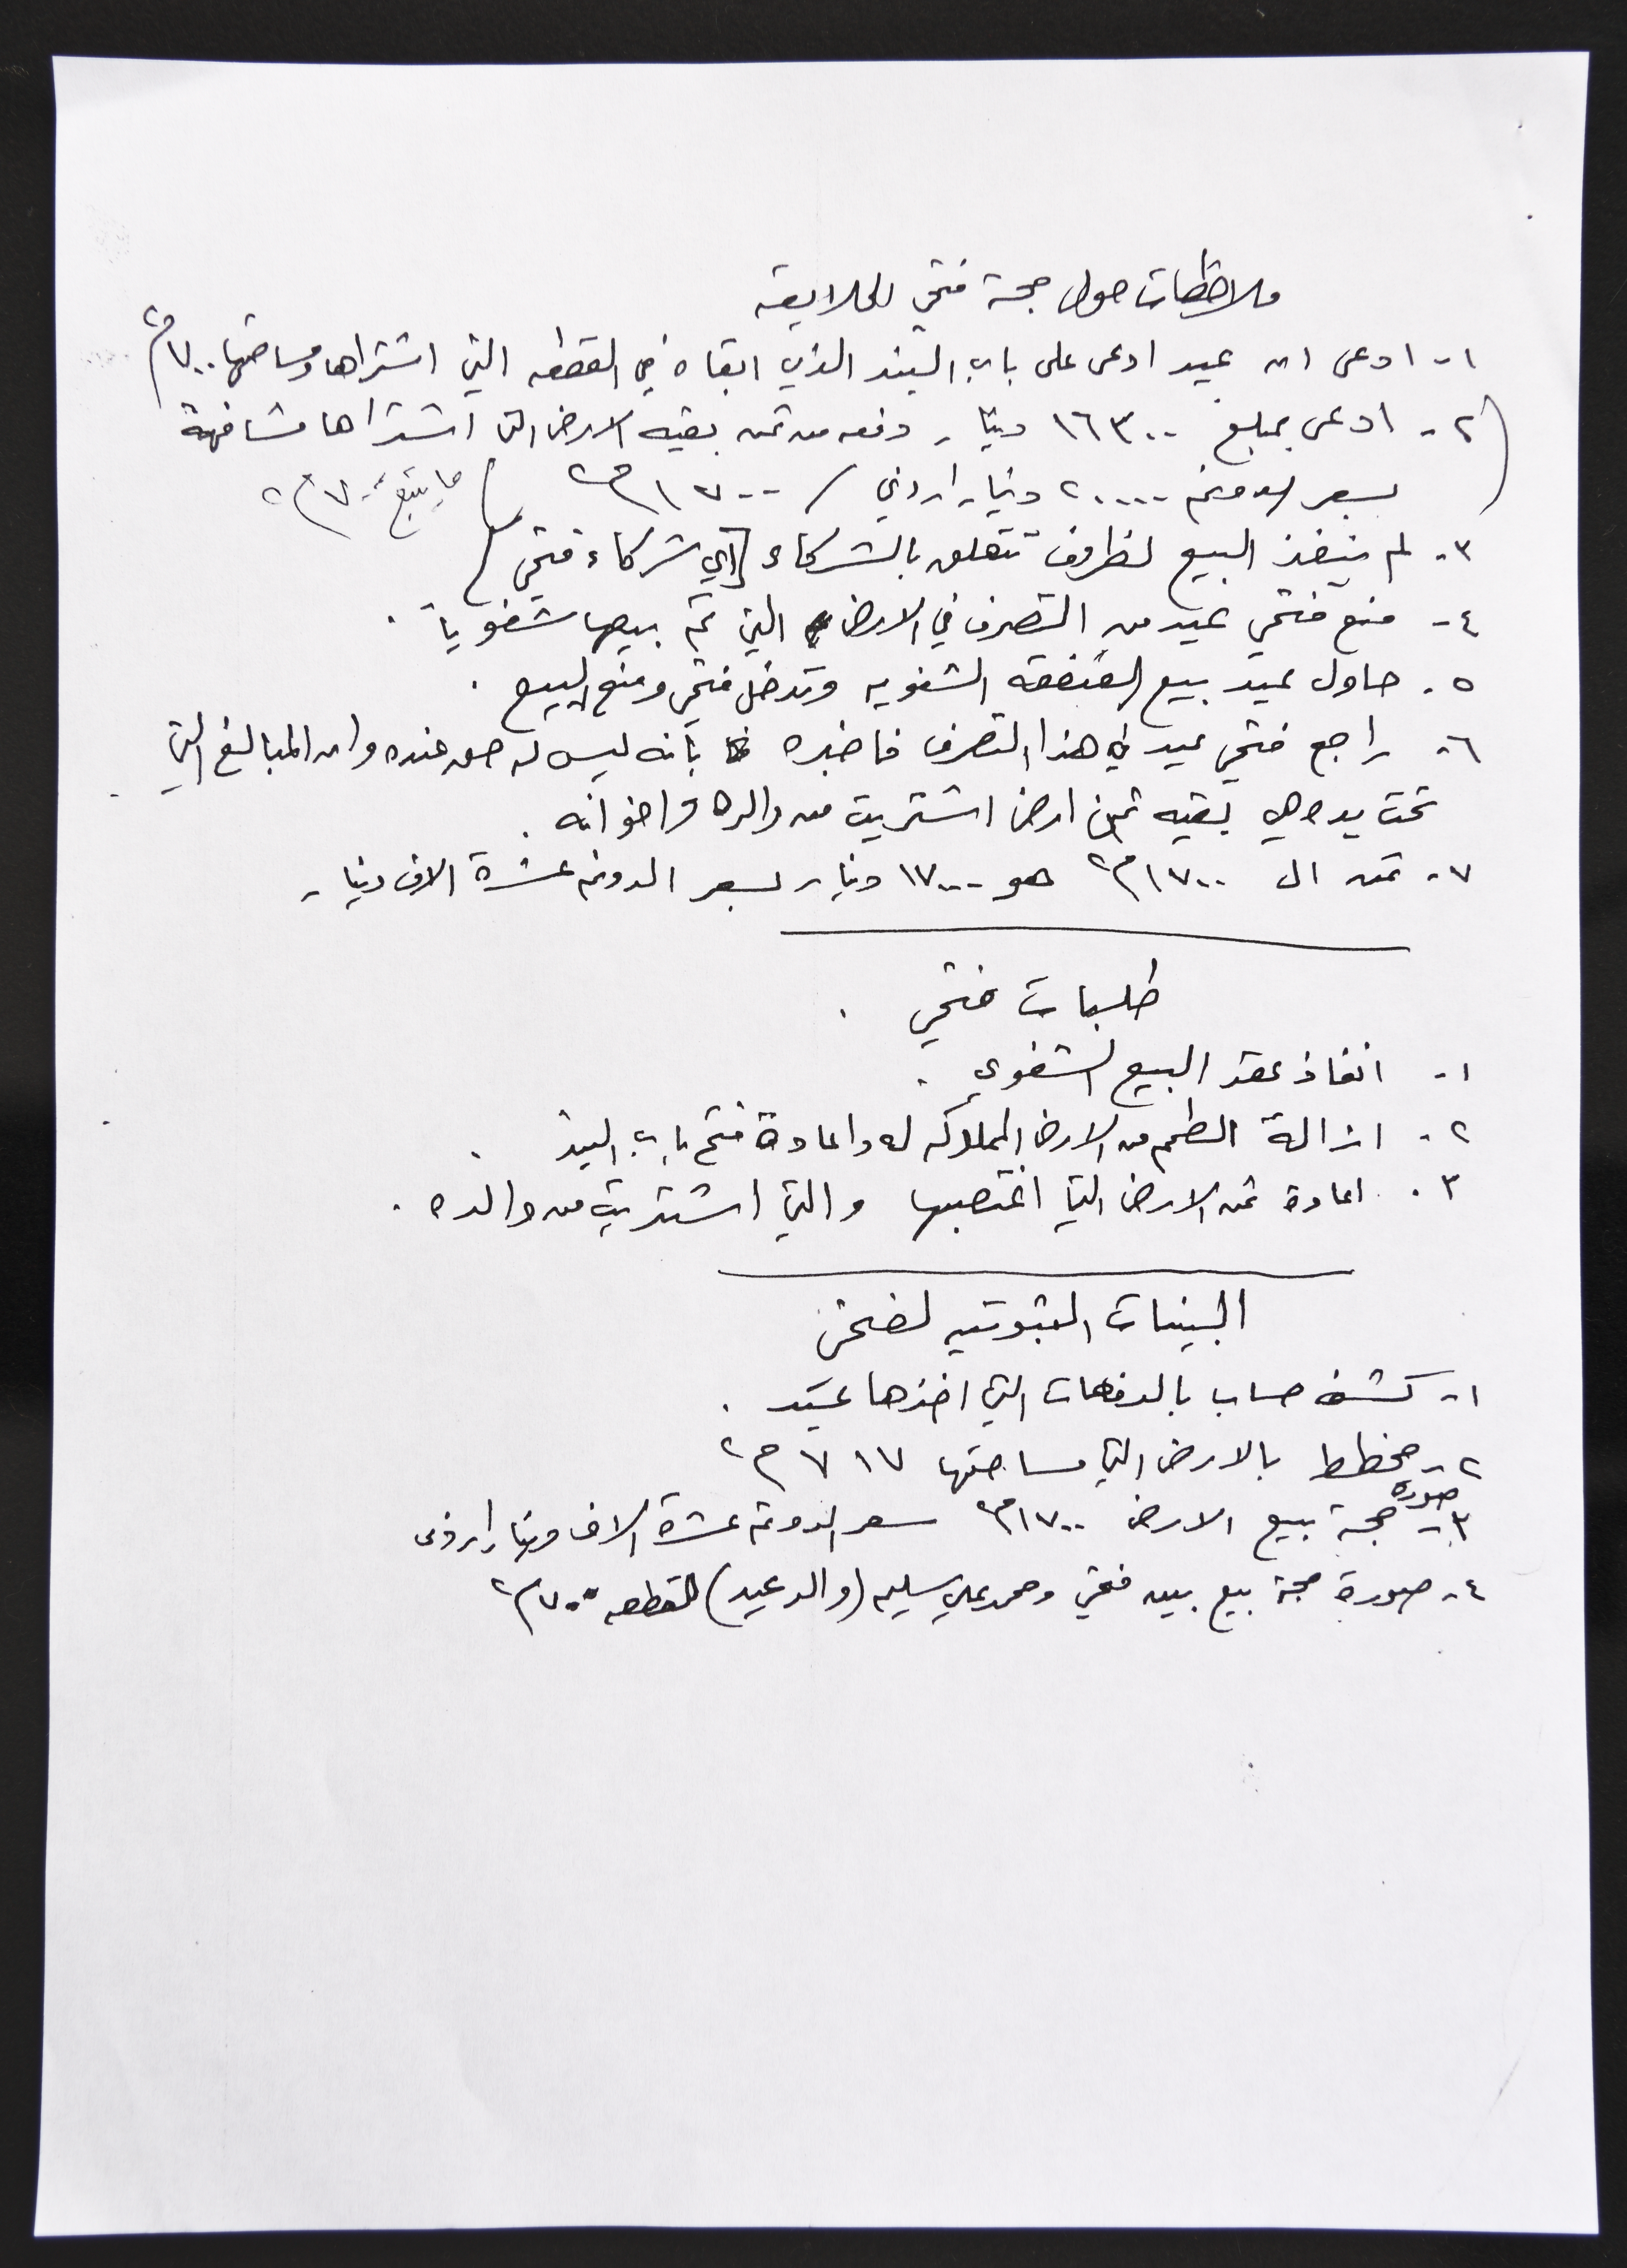 ملاحظات حول حجة فتحي
١- ادعى ان عيد ادعى على باب البند الذي ابقاه في القطعه التي اشتراها ومساحتها ٧٠٠م٢
(٢- ادعى بمبلغ ١٦٣٠٠ دينار دفعه من ثمن بقيه الارض التي اشتراها مشافهة
بسعر الدونم ٢٠٠٠٠ دينار اردني / ١٧٠٠م٢ / ما يتبع ٧٠٠م٢
٣- لم ينفذ البيع لظروف تتعلق بالشركاء [اي شركاء فتحي]
٤- منع فتحي عيد من التصرف في الارض التي تم بيعها شفوياً.
٥- حاول عيد بيع القطعه الشفويه وتدخل فتحي ومنع البيع.
٦- راجع فتحي عيد في هذا التصرف فاخبره بانه ليس له حق عنده وان المبالغ التي
تحت يده هي بقيه ثمن ارض اشتريت من والده واخوانه.
٧- ثمن ال ١٧٠٠م٢ هو ١٧٠٠٠ دينار بسعر الدونم عشرة الاف دينار
طلبات فتحي.
١- انفاذ عقد البيع الشفوي.
٢- ازالة الطمم من الارض المملوكه له واعادة فتح باب البند.
٣. اعادة ثمن الارض التي اغتصبها والتي اشتريت من والده.
البينات الثبوتيه لفتحي
١- كشف حساب بالدفعات التي اخذها عيد.
٢- مخطط بالارض التي مساحتها ٧١٧م٢
٣- صورة حجة بيع الارض ١٧٠٠م٢ سعر الدونم عشرة الاف دينار اردني
٤- صورة حجة بيع بين فتحي ومحمد علي سليم (والد عيد) للقطعه ٧٠٠م٢